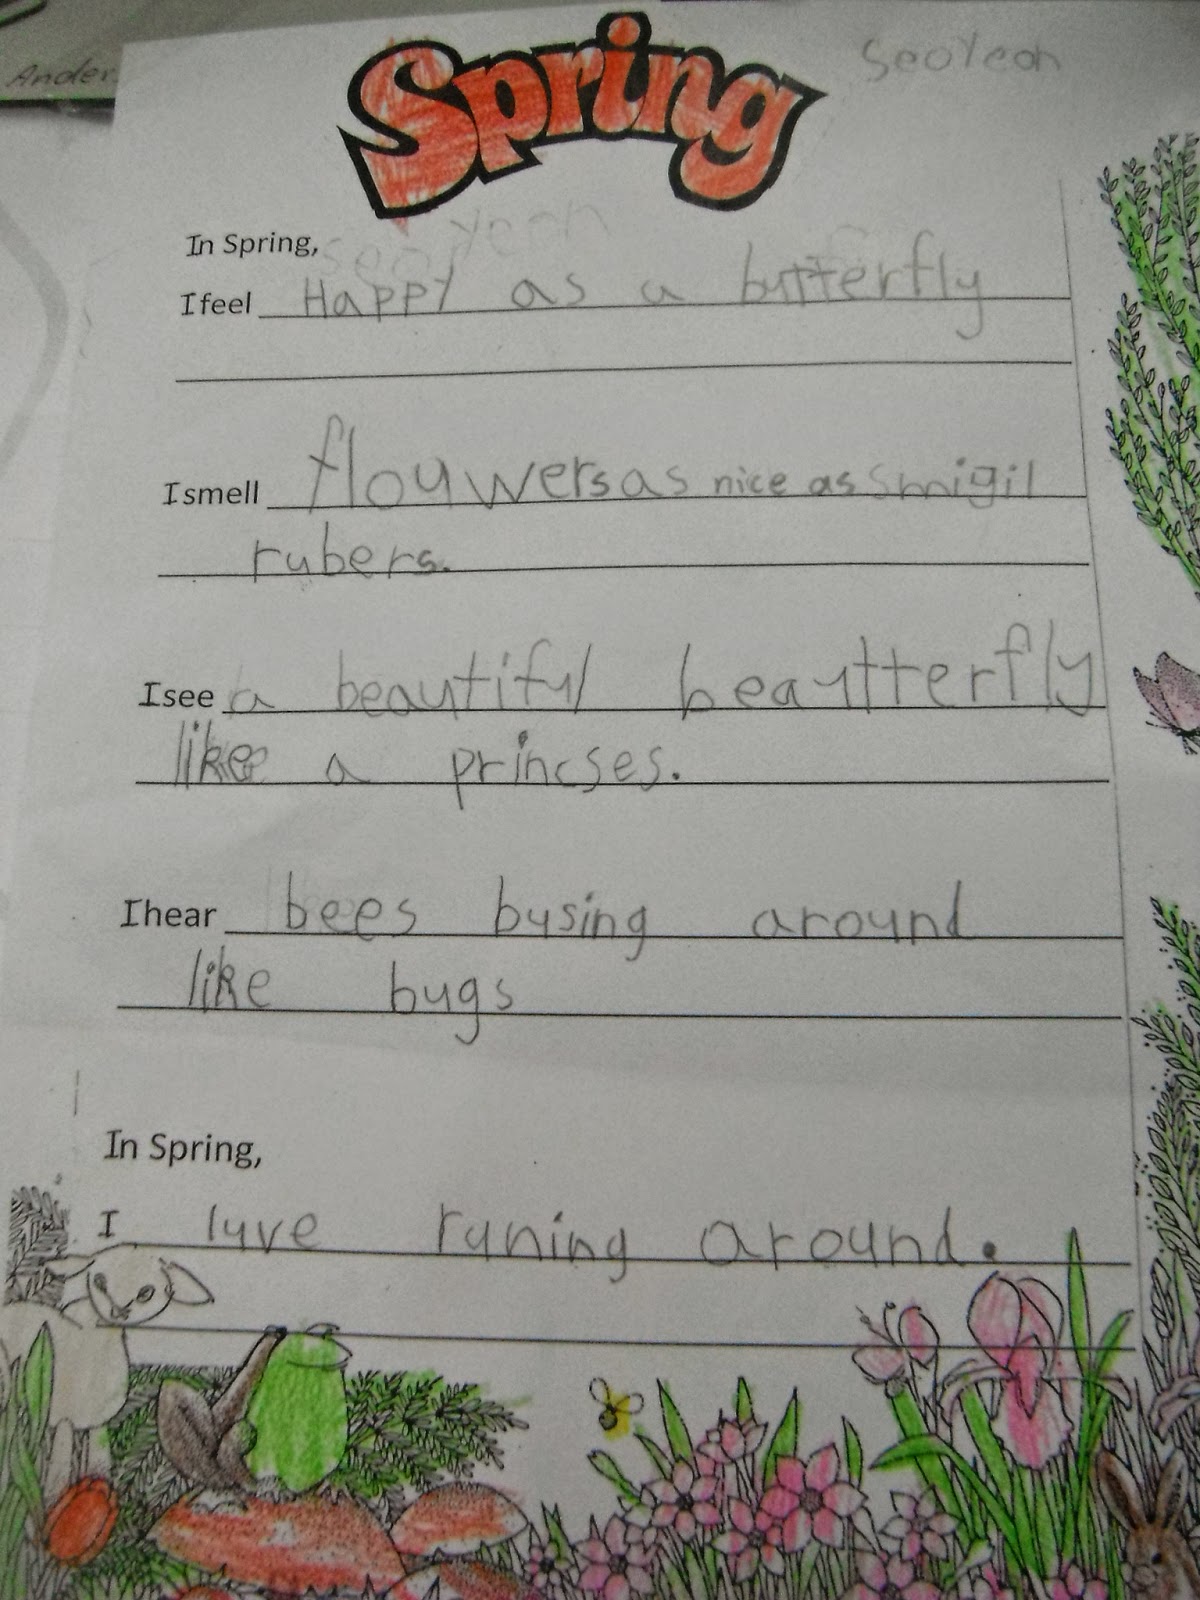 Ander
Spring
SeoYeon
In Spring,
I feel Happy as a butterfly
I smell flouwers as nice as smigil
rubers.
I see a beautiful beautterfly
like a princses.
I hear bees busing around
like bugs
In Spring,
I luve runing around.